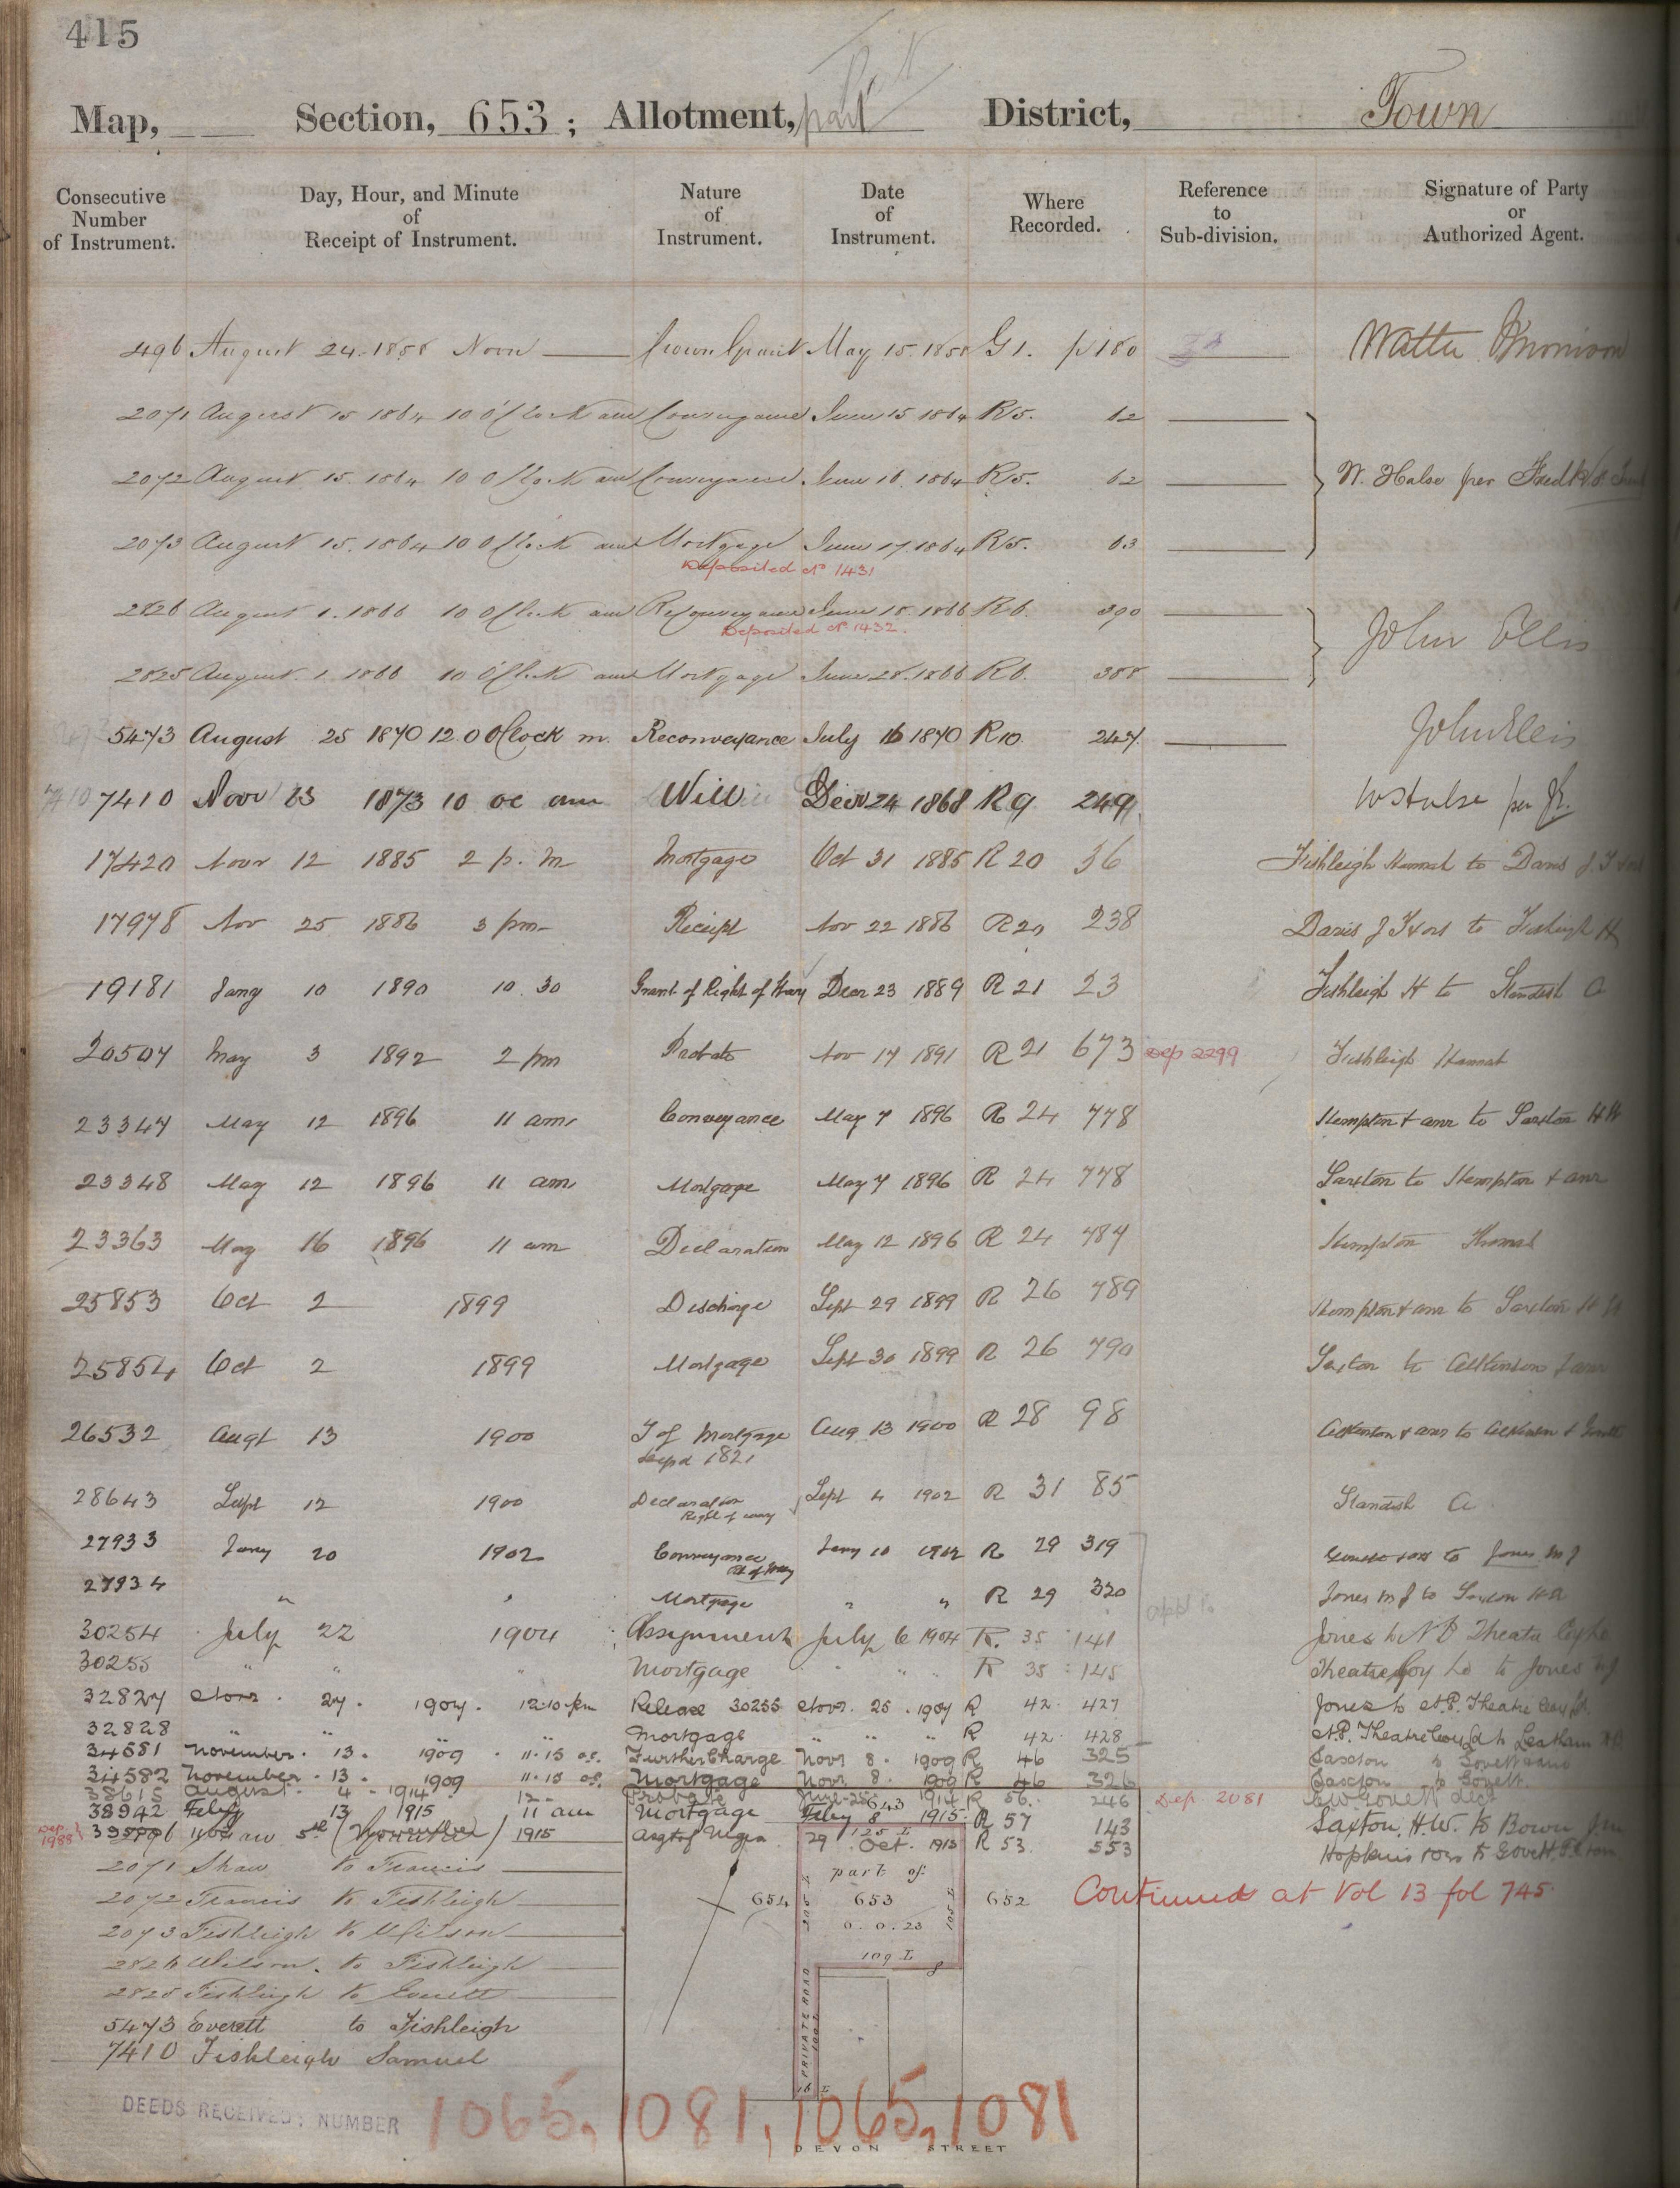 415
Map, Section, 653; Allotment, part District, Town
Consecutive Number of Instrument. Day, Hour, and Minute of Receipt of Instrument. Nature of Instrument. Date of Instrument. Where Recorded. Reference to Sub-division. Signature of Party or Authorized Agent.
496 August 24. 1858 Noon Crown Grant May 15. 1858 G 1. p 180
2071 August 15 1864 10 O'Clock am Conveyance June 15 1864 R 5. 62
2072 August 15. 1864 10 O'Clock am Conveyance June 16. 1864 R 5. 62 W. Halse per
2073 August 15. 1864 10 O'Clock am Mortgage June 17 1864 R 5. 63
Deposited No 1431
2826 August 1. 1866 10 O'Clock am Reconveyance June 18. 1866 R 6. 390
Deposited No 1432.
John Ellis
2825 August 1. 1866 10 O'Clock am Mortgage June 28. 1866 R 6. 388
5473 August 25 1870 12.0 O'Clock m. Reconveyance July 16 1870 R 10 247 John Ellis
7410 Novr 23 1873 10 oc am Will Decr 24 1868 R 9 249 W Halse per
17420 Novr 12 1885 2 p.m Mortgage Oct 31 1885 R 20 36 Fishleigh Hannah to Davis J.
17978 Nov 25 1886 3 pm Receipt Nov 22 1886 R 20 238 Davis J & ors to Fishleigh H
19181 Jany 10 1890 10.30 Grant of Right of Way Decr 23 1889 R 21 23 Fishleigh H to Standish A
20507 May 3 1892 2 pm Probate Nov 17 1891 R 21 673 Dep 2299 Fishleigh Hannah
23347 May 12 1896 11 am Conveyance May 7 1896 R 24 778 Hempton & anr to Saxton H W
23348 May 12 1896 11 am Mortgage May 7 1896 R 24 778 Saxton to Hempton & anr
23363 May 16 1896 11 am Declaration May 12 1896 R 24 787 Hempton Thomas
25853 Oct 2 1899 Discharge Sept 29 1899 R 26 789 Hempton & anr to Saxton H W
25854 Oct 2 1899 Mortgage Sept 30 1899 R 26 790 Saxton to Atkinson & anr
26532 Augt 13 1900 T of Mortgage Aug 13 1900 R 28 98 Atkinson & anr to
Depd 1821
28643 Sept 12 1900 Declaration Right of way Sept 4 1902 R 31 85 Standish A
27933 Jany 20 1902 Conveyance Rt of Way Jany 10 1902 R 29 319 to Jones M J
27934 " " Mortgage " " R 29 320 Jones M J to Saxton H W
30254 July 22 1904 Assignment July 6 1904 R. 35 141 Jones to N P Theatre Coy Ld
30255 " " " Mortgage " " " R 35 145 Theatre Coy Ld to Jones M J
32827 Novr. 27. 1907. 12.10 pm Release 30255 Novr. 25. 1907 R 42. 427 Jones to N.P. Theatre Coy Ld
32828 " " Mortgage " " " R 42. 428 N.P. Theatre Coy Ld to Leatham
34581 November. 13. 1909. 11.15 o.c. Further Charge Novr 8. 1909 R 46 325 Saxton to Govett & anr
34582 November. 13. 1909 11.15 o.c. Mortgage Novr. 8. 1909 R 46 326 Saxton to Govett
38615 August. 4. 1914 12 Probate June 25 1914 R 56. 246 Dep. 2081 Govett decd
38942 Feby 13 1915 11 am Mortgage Feby 8 1915. R 57 143 Saxton, H.W. to Bown
Dep. 1988
5th (November) 1915 Asgt of Mgea 29 Oct. 1913 R 53. 553 Hopkins to Govett
2071 Shaw to Francis
2072 Francis to Fishleigh
2073 Fishleigh to Wilson
2826 Wilson. to Fishleigh
2825 Fishleigh to Everett
5473 Everett to Fishleigh
7410 Fishleigh Samuel
Continued at Vol 13 fol 745
643
125 L
part of
654 653 652
0.0.23
205 L
105 L
109 L
PRIVATE ROAD
100 L
16 L
DEVON STREET
DEEDS RECEIVED: NUMBER
1065, 1081, 1065, 1081